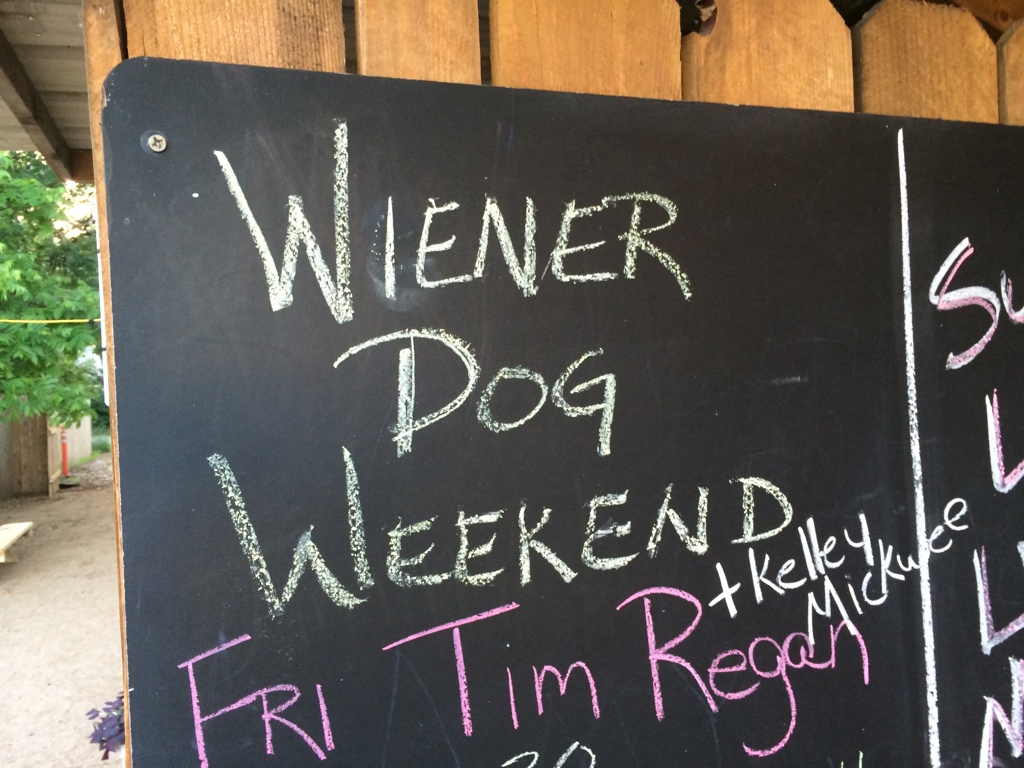 WIENER
DOG
WEEKEND
+ Kelley
Mickwee
FRI TIM Regan